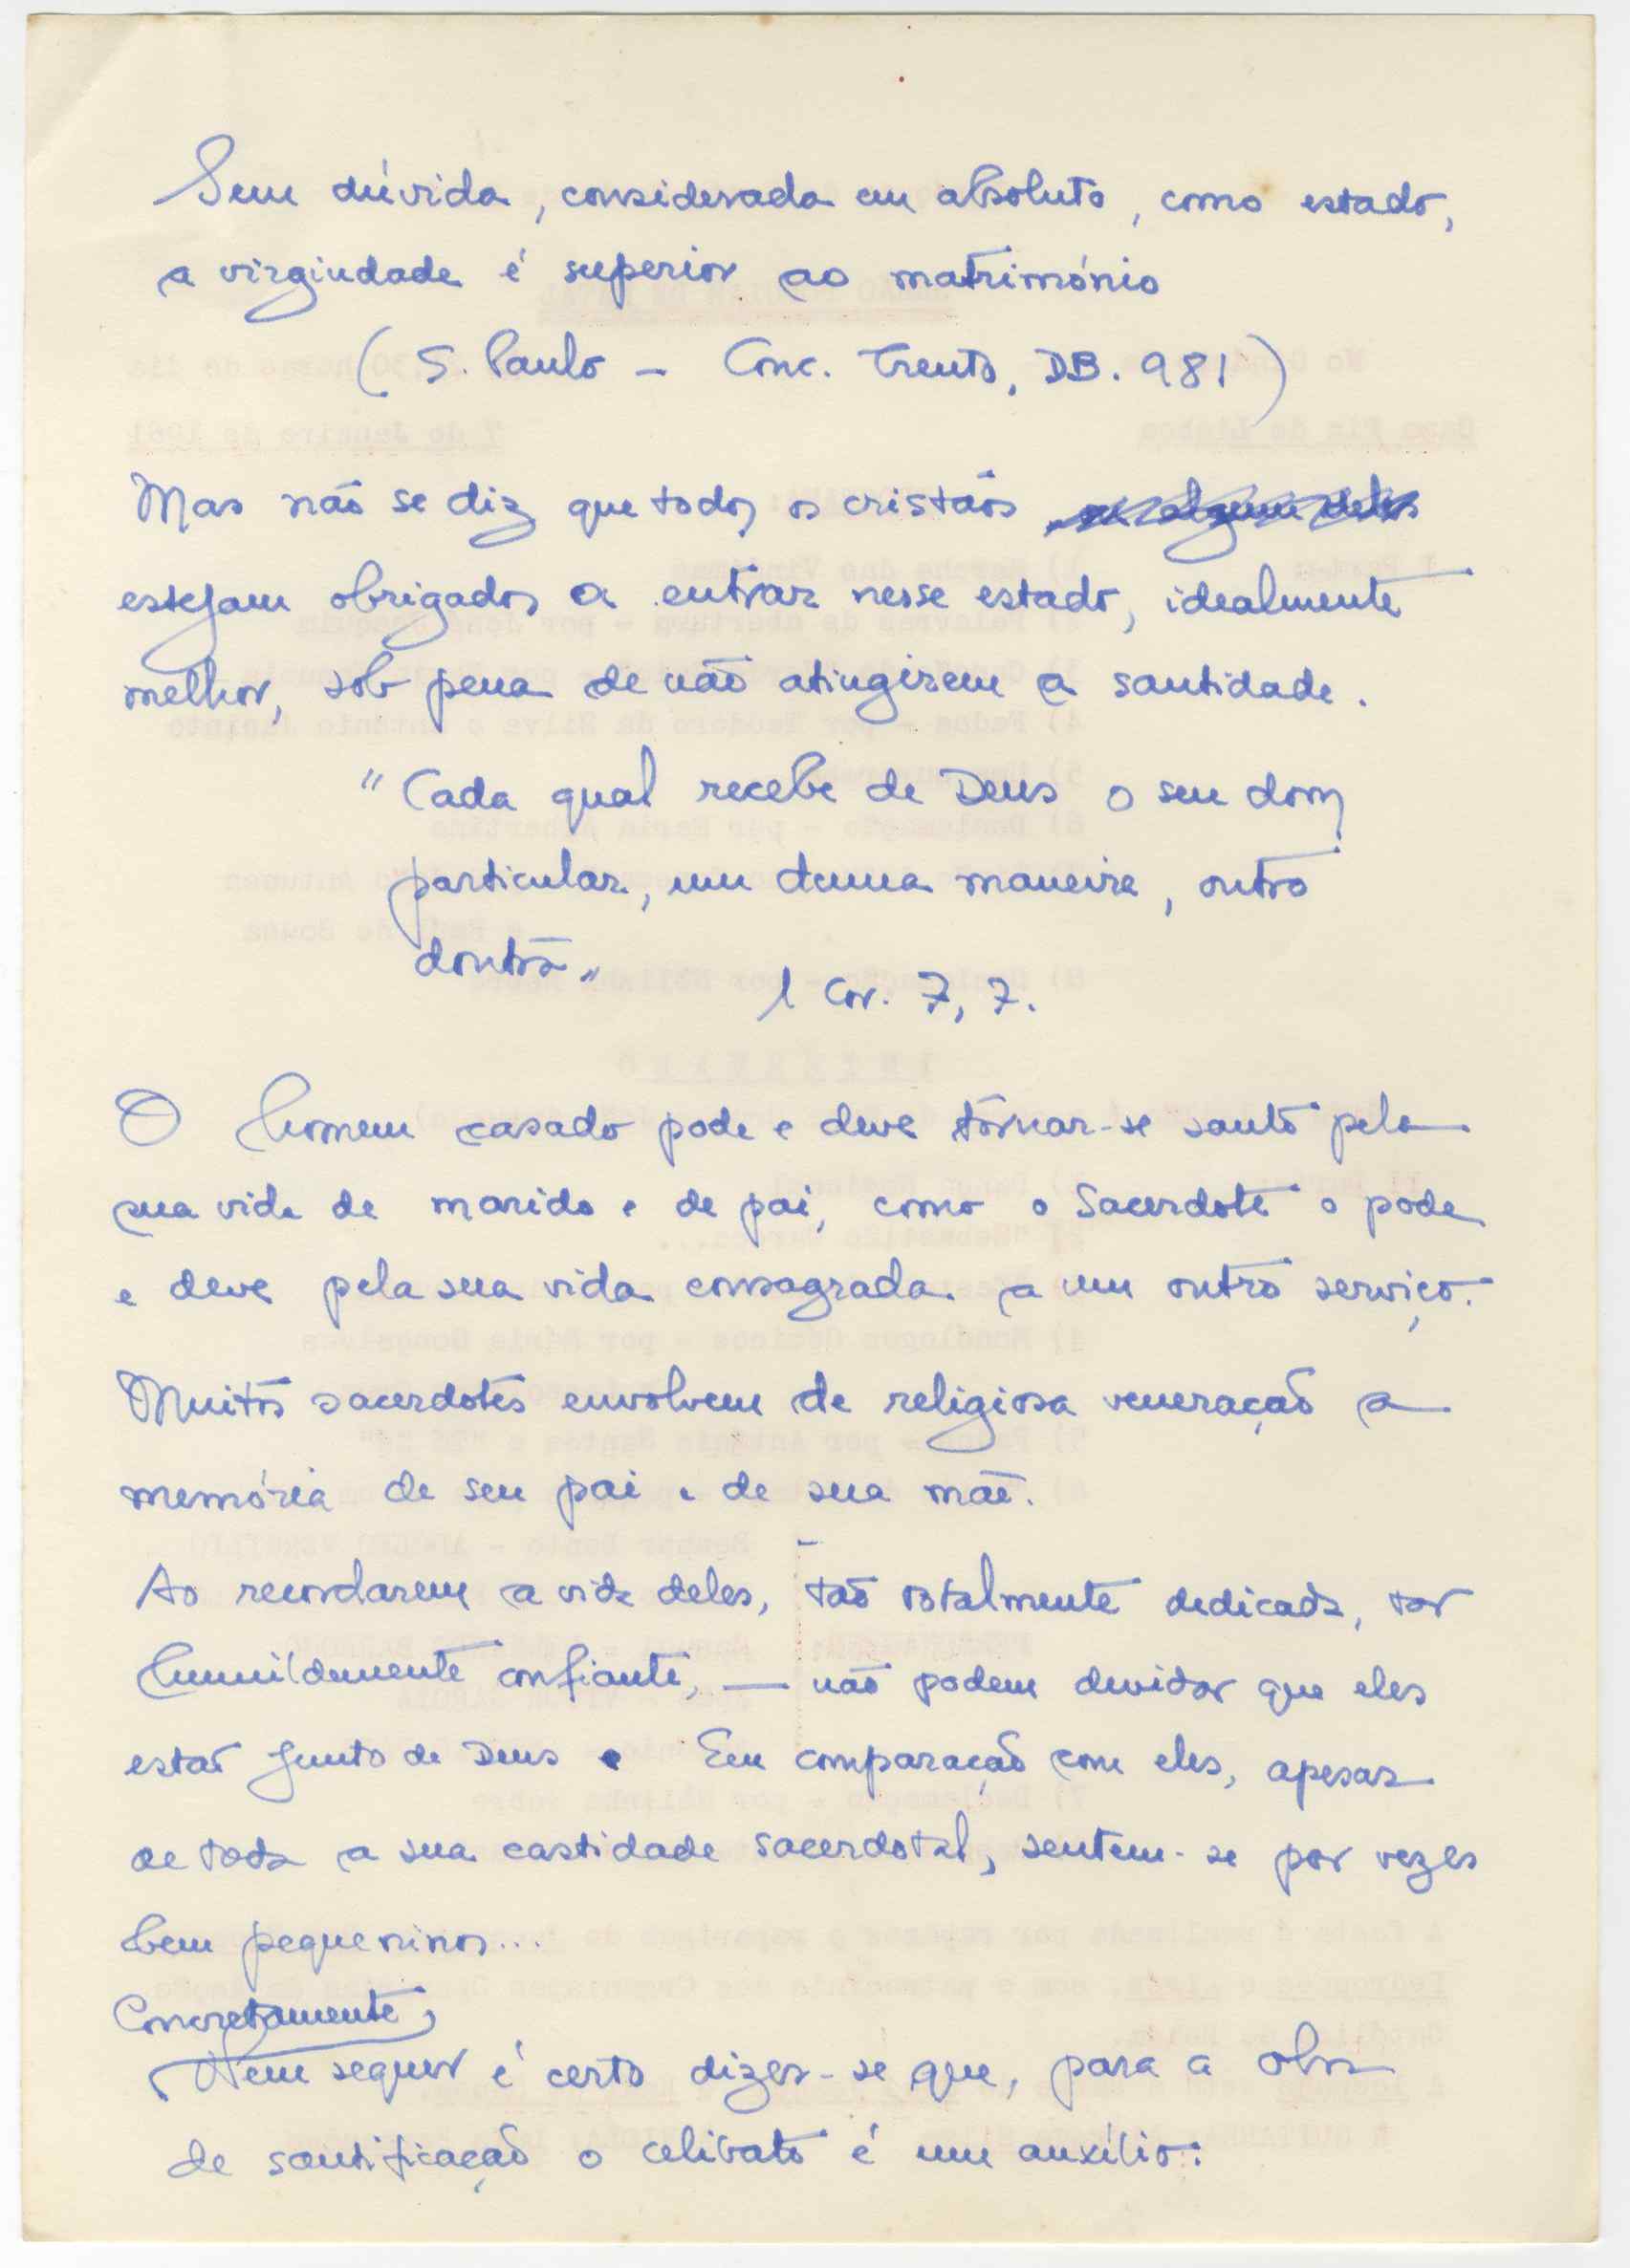 Sem dúvida, considerada em absoluto, como estado,
a virgindade é superior ao matrimónio
(S. Paulo – Conc. Trento, DB. 981)
Mas não se diz que todos os cristãos
estejam obrigados a entrar nesse estado, idealmente
melhor, sob pena de não atingirem a santidade.
"Cada qual recebe de Deus o seu dom
particular, um duma maneira, outro
doutra"
1 Cor. 7, 7.
O homem casado pode e deve tornar-se santo pela
sua vida de marido e de pai, como o Sacerdote o pode
e deve pela sua vida consagrada a um outro serviço.
Muitos sacerdotes envolvem de religiosa veneração a
memória de seu pai e de sua mãe.
Ao recordarem a vida deles, tão totalmente dedicada, tão
humildemente confiante, — não podem duvidar que eles
estão junto de Deus. Em comparação com eles, apesar
de toda a sua castidade sacerdotal, sentem-se por vezes
bem pequeninos...
Concretamente,
Nem sequer é certo dizer-se que, para a obra
de santificação o celibato é um auxílio: